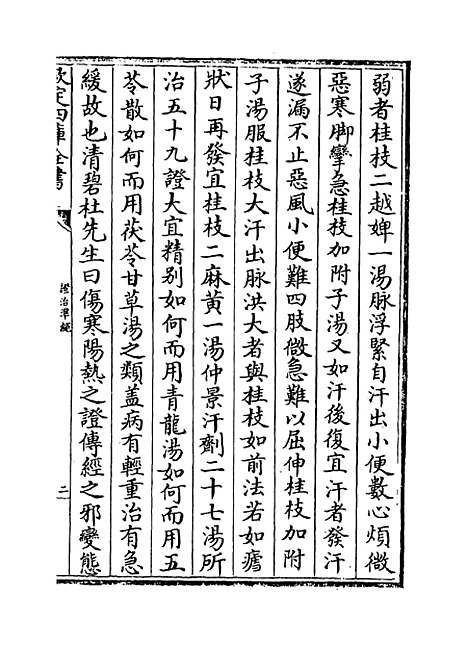 弱者桂枝二越婢一湯脉浮緊自汗出小便數心煩微
惡寒脚攣急桂枝加附子湯又如汗後復宜汗者發汗
遂漏不止惡風小便難四肢微急難以屈伸桂枝加附
子湯服桂枝大汗出脉洪大者與桂枝如前法若如瘧
狀日再發宜桂枝二麻黄一湯仲景汗劑二十七湯所
治五十九證大宜精别如何而用青龍湯如何而用五
苓散如何而用茯苓甘草湯之類蓋病有輕重治有急
緩故也清碧杜先生曰傷寒陽熱之證傳經之邪變態
欽定四庫全書
證治準繩
二